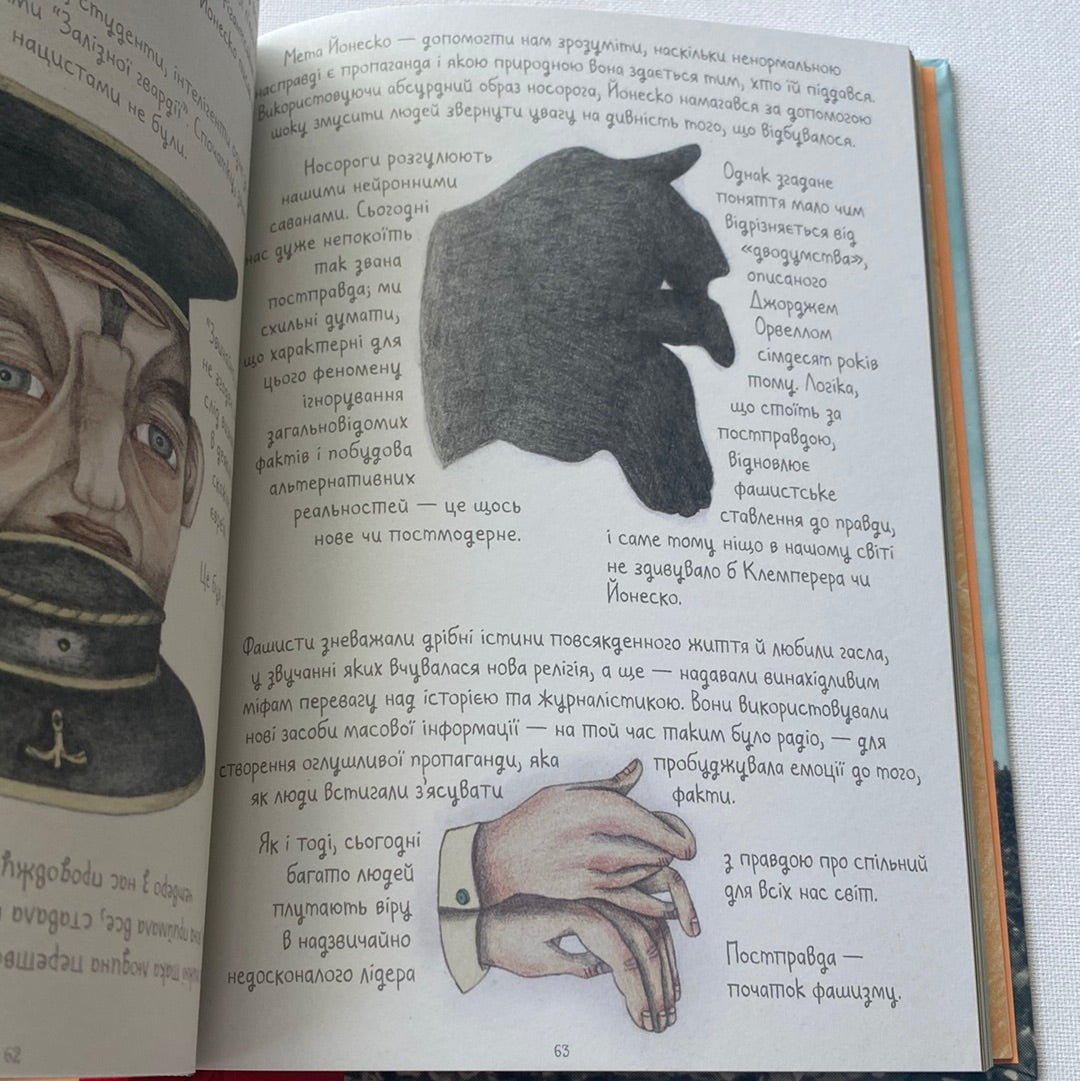 Студенти, інтелігенти
"Залізної гвардії". Спочатку
нацистами не були.
62
Мета Йонеско — допомогти нам зрозуміти, наскільки ненормальною
насправді є пропаганда і якою природною вона здається тим, хто їй піддався.
Використовуючи абсурдний образ носорога, Йонеско намагався за допомогою
шоку змусити людей звернути увагу на дивність того, що відбувалося.
Носороги розгулюють
нашими нейронними
саванами. Сьогодні
нас дуже непокоїть
так звана
постправда; ми
схильні думати,
що характерні для
цього феномену
ігнорування
загальновідомих
фактів і побудова
альтернативних
реальностей — це щось
нове чи постмодерне.
Однак згадане
поняття мало чим
відрізняється від
«дводумства»,
описаного
Джорджем
Орвеллом
сімдесят років
тому. Логіка,
що стоїть за
постправдою,
відновлює
фашистське
ставлення до правди,
і саме тому ніщо в нашому світі
не здивувало б Клемперера чи
Йонеско.
Фашисти зневажали дрібні істини повсякденного життя й любили гасла,
у звучанні яких вчувалася нова релігія, а ще — надавали винахідливим
міфам перевагу над історією та журналістикою. Вони використовували
нові засоби масової інформації — на той час таким було радіо, — для
створення оглушливої пропаганди, яка пробуджувала емоції до того,
як люди встигали з'ясувати факти.
Як і тоді, сьогодні
багато людей
плутають віру
в надзвичайно
недосконалого лідера
з правдою про спільний
для всіх нас світ.
Постправда —
початок фашизму.
63